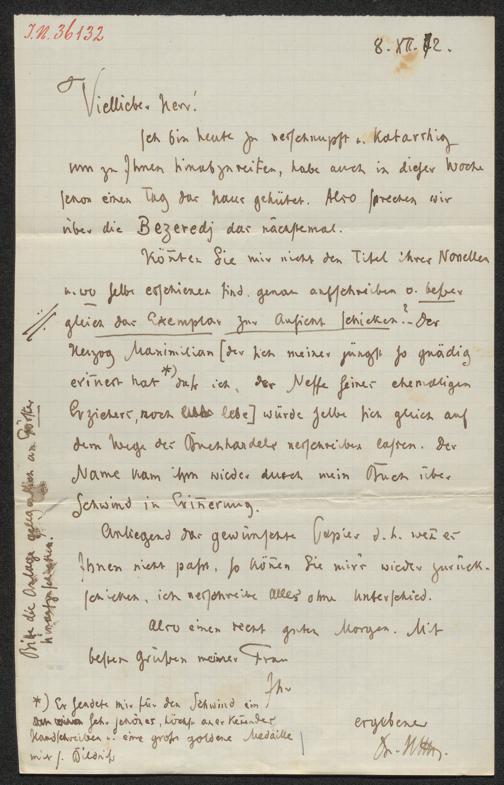 I.N. 36132
8. XII. 12.
Viellieber Herr!
Ich bin heute zu verschnupft u. katarrhig
um zu Ihnen hinabzureisen, habe auch in dieser Woche
schon einen Tag das Haus gehütet. Also sprechen wir
über die Bezeredj das nächstemal.
Könten Sie mir nicht den Titel ihrer Novellen
u. wo selbe erschienen sind genau aufschreiben o. besser
gleich das Exemplar zur Ansicht schicken? Der
Herzog Maximilian [der sich meiner jüngst so gnädig
eriñert hat *) daß ich, der Neffe seines ehemaligen
Erziehers, noch lebe] würde selbe sich gleich auf
dem Wege des Buchhandels verschreiben lassen. Der
Name kam ihm wieder durch mein Buch über
Schwind in Eriñerung.
Anliegend das gewünschte Papier d. h. weñ es
Ihnen nicht paßt, so köñen Sie mir's wieder zurück-
schicken, ich verschreibe alles ohne Unterschied.
Also einen recht guten Morgen. Mit
besten Grüßen meiner Frau
Ihr
ergebener
*) Er sendete mir für den Schwind ein
sehr schönes, höchst anerkeñendes
Handschreiben u. eine große goldene Medaille
mit s. Bildniß
Bitte die Anlage gelegentlich an